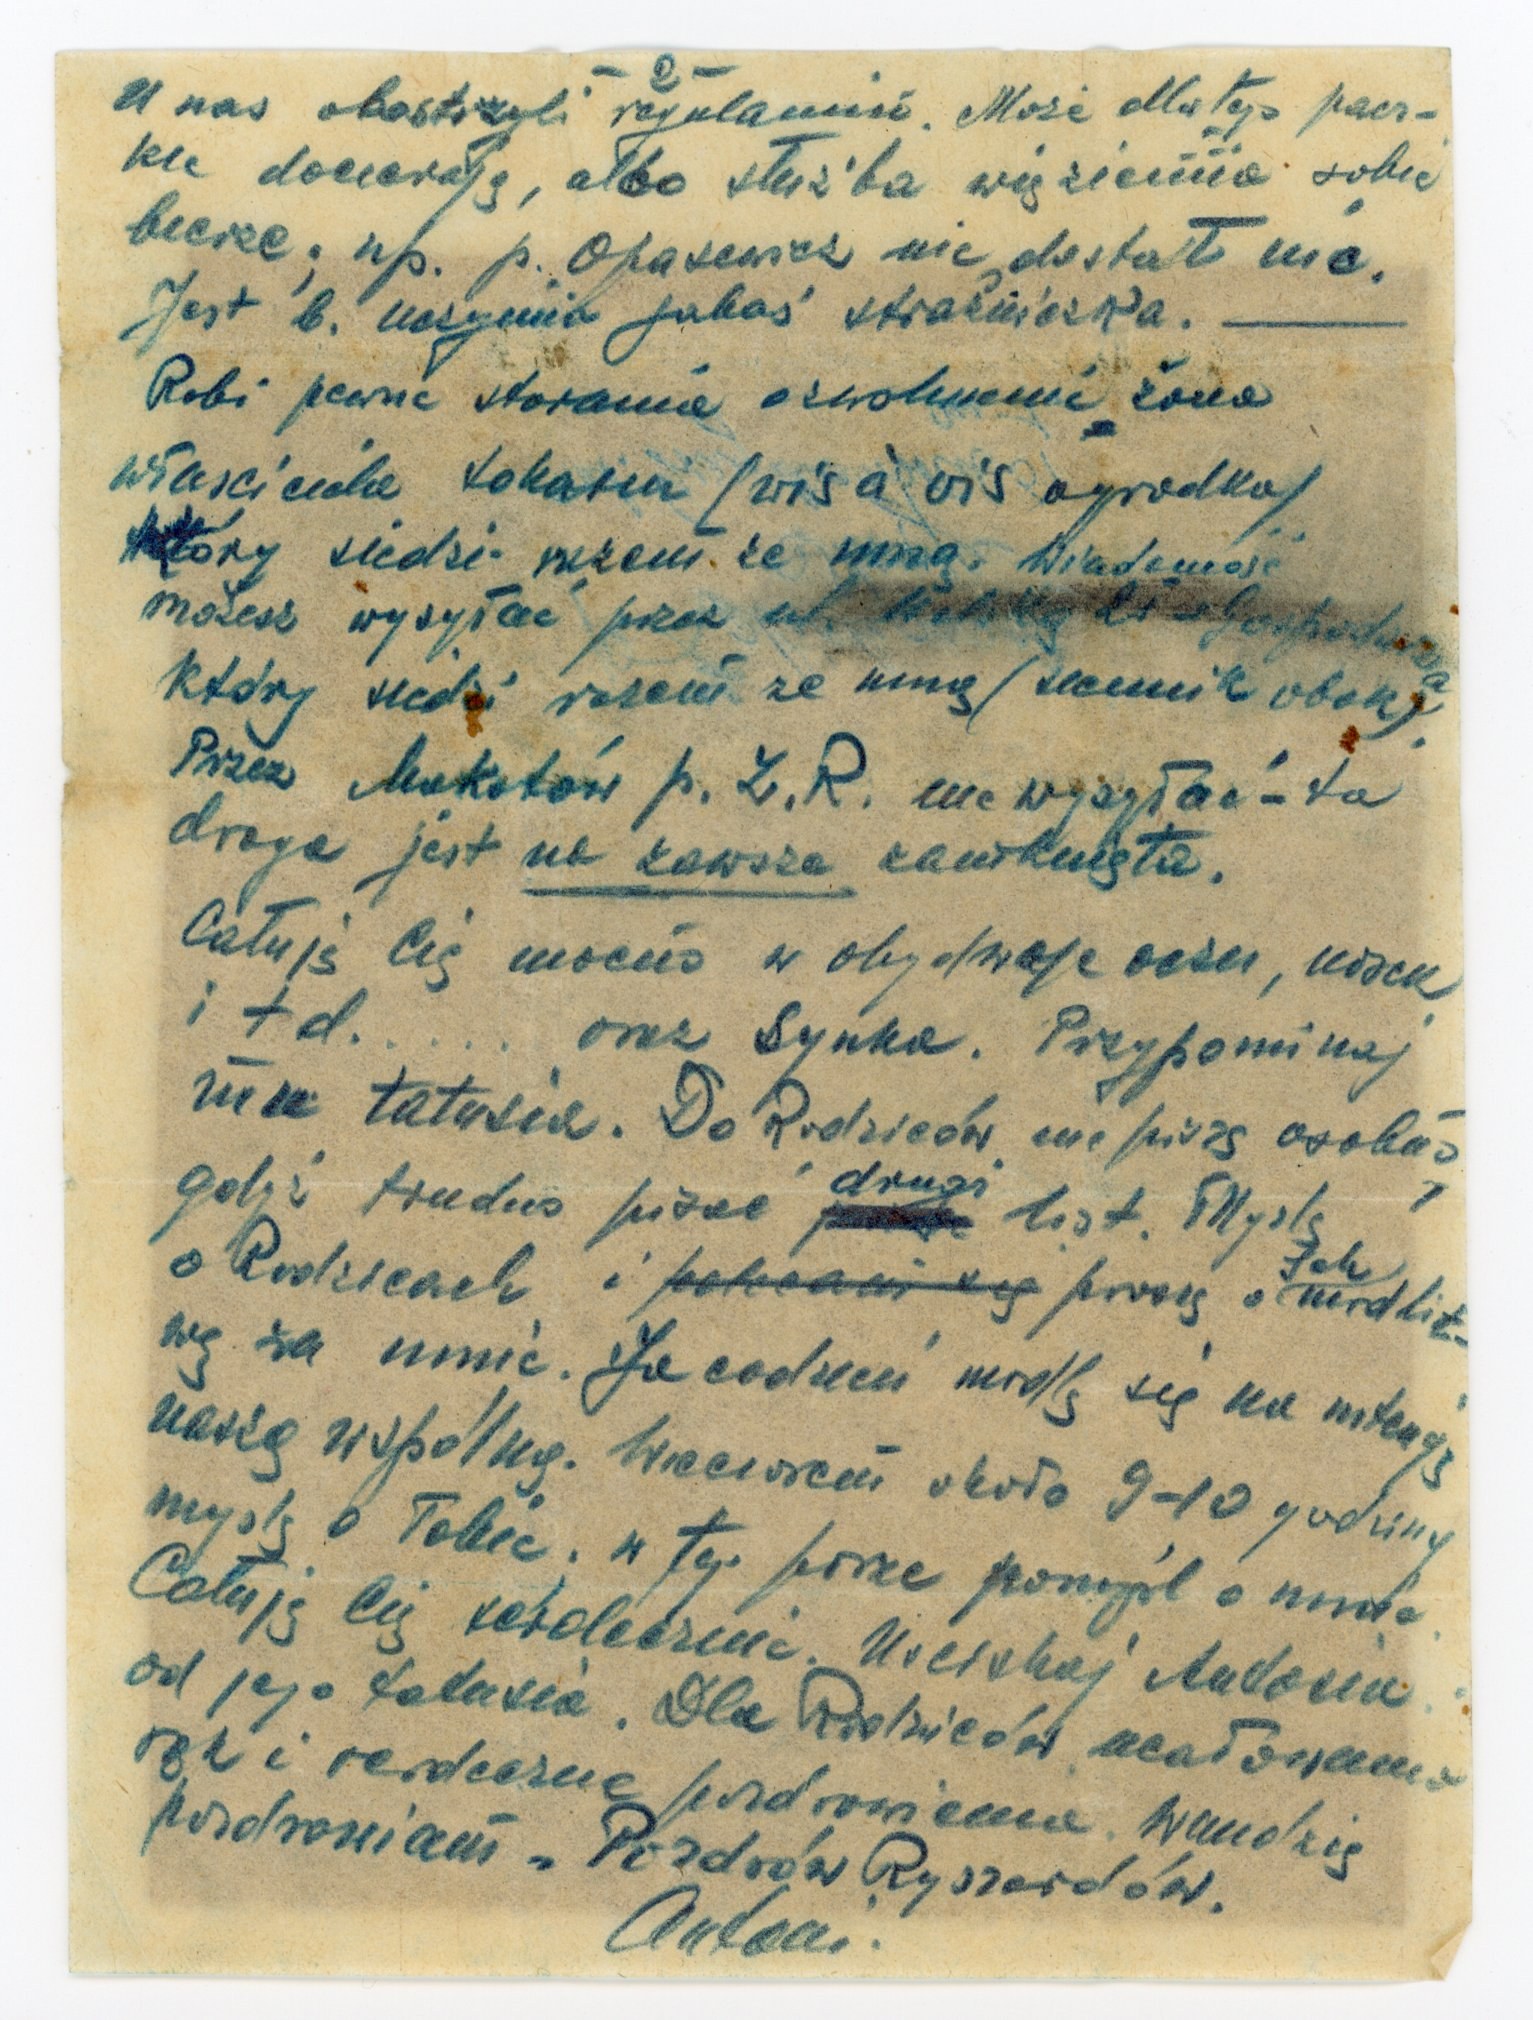 - 2 -
U nas obostrzyli regulamin. Może dlatego pacz-
ki docierają, albo służba więzienna sobie
bierze; np. p. Opasewicz nic dostał nic.
Jest b. uczynna jakaś strażniczka. ———
Robi pewne starania o zwolnienie żona
właściciela tokarni (wis á wis ogródka)
który siedzi razem ze mną. Wiadomość
możesz wysyłać przez ul. gospodarza
który siedzi razem ze mną (siennik obok).
Przez Mokotów p. Z.R. nie wysyłać - ta
droga jest na zawsze zamknięta.
Całuję Cię mocno w obydwoje oczu, nosek
i t d. . . . . . oraz Synka. Przypominaj
mu tatusia. Do Rodziców nie piszę osobno,
gdyż trudno pisać drugi list. Myślę
o Rodzicach i polecam się proszę o Ich modlit-
wę za mnie. Ja codzień modlę się na intencję
naszą wspólną. Wieczorem około 9-10 godziny
myślę o Tobie, w tej porze pomyśl o mnie.
Całuję Cię serdecznie. Uściskaj Antosia
od jego tatusia. Dla Rodziców ucałowania
rąk i serdeczne pozdrowienia. Wandzię
pozdrawiam - Pozdrów Ryszardów.
Antoni.